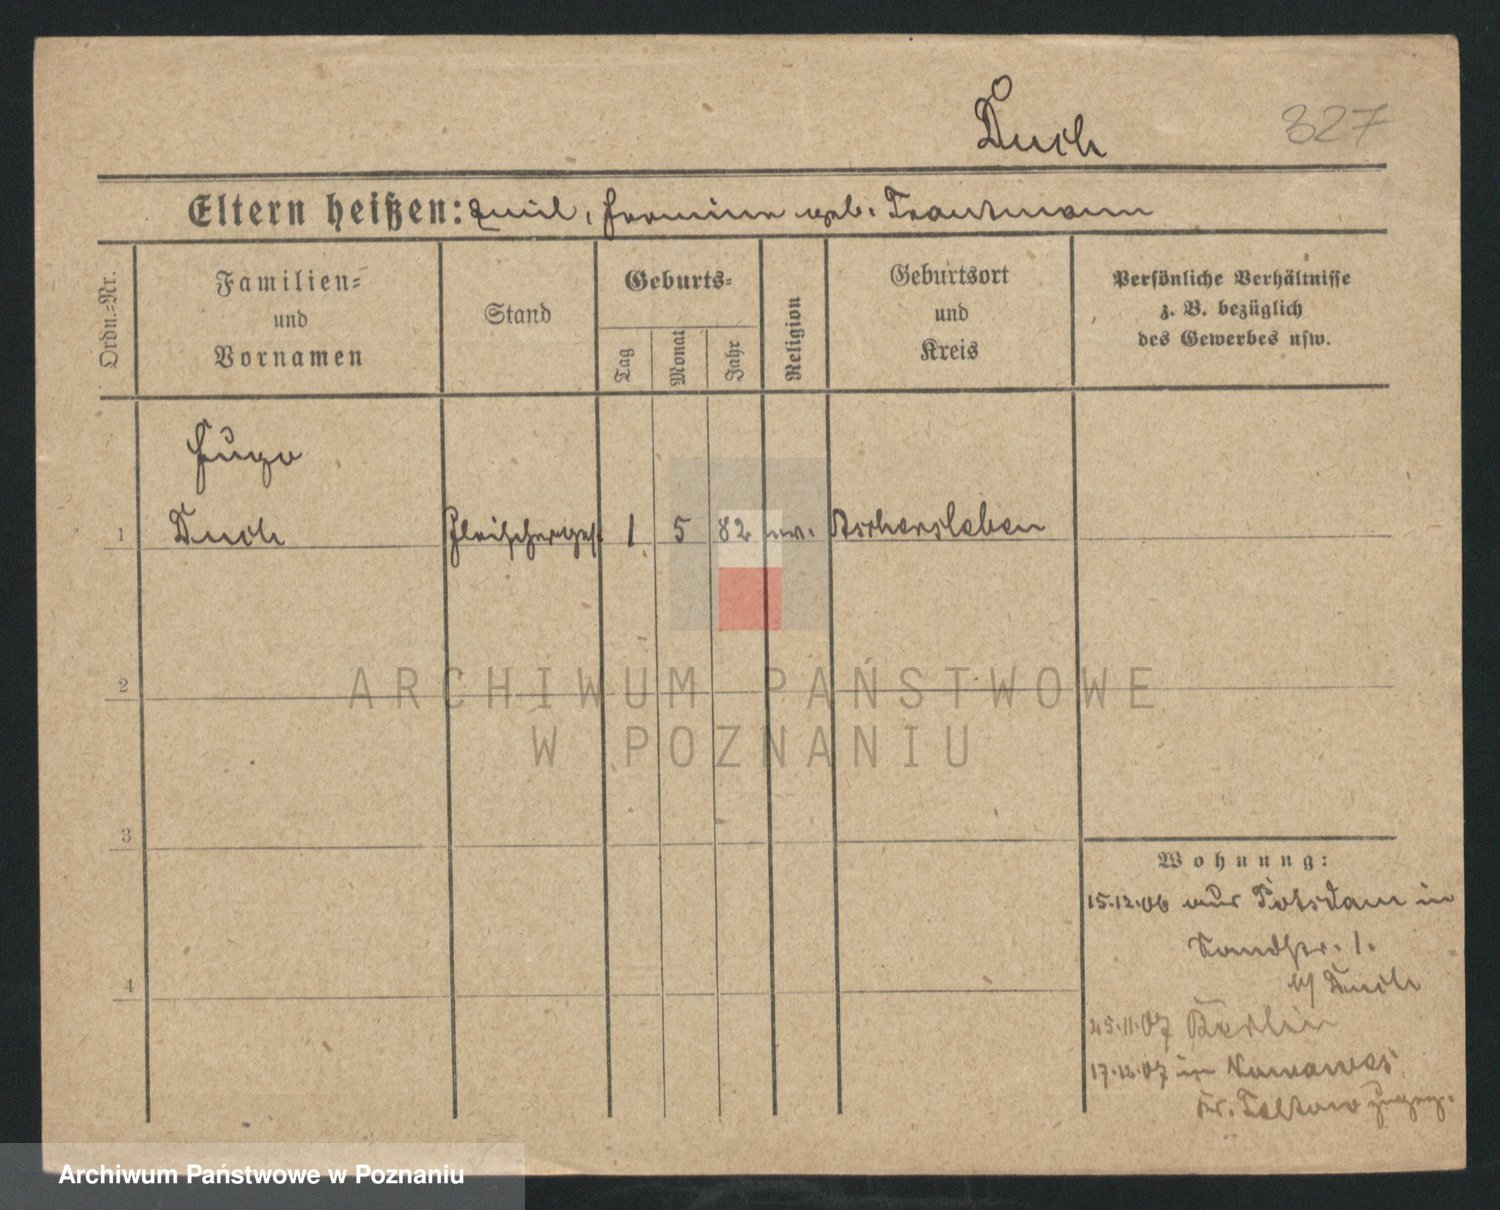 Duch
327
Eltern heißen: Emil, Hermine geb. Trautmann
Ordn.-Nr.
Familien-
und
Vornamen
Stand
Geburts-
Tag
Monat
Jahr
Religion
Geburtsort
und
Kreis
Persönliche Verhältnisse
z. B. bezüglich
des Gewerbes usw.
Hugo
1 Duch Fleischerges. 1 5 82 ev. Aschersleben
2
ARCHIWUM PAŃSTWOWE
W POZNANIU
3
Wohnung:
15.12.06 aus Potsdam in
Sandstr. 1.
b/ Duch
4
25.11.07 Berlin
17.12.07 in Nowawes
Kr. Teltow zugez.
Archiwum Państwowe w Poznaniu